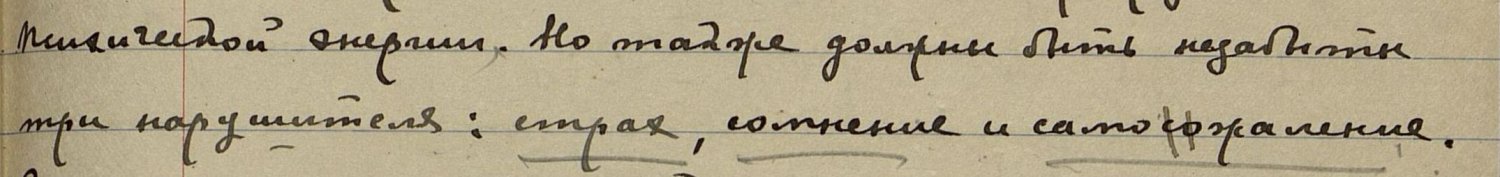 психической энергии. Но также должны быть незабыты
три нарушителя: страх, сомнение и саможаление.